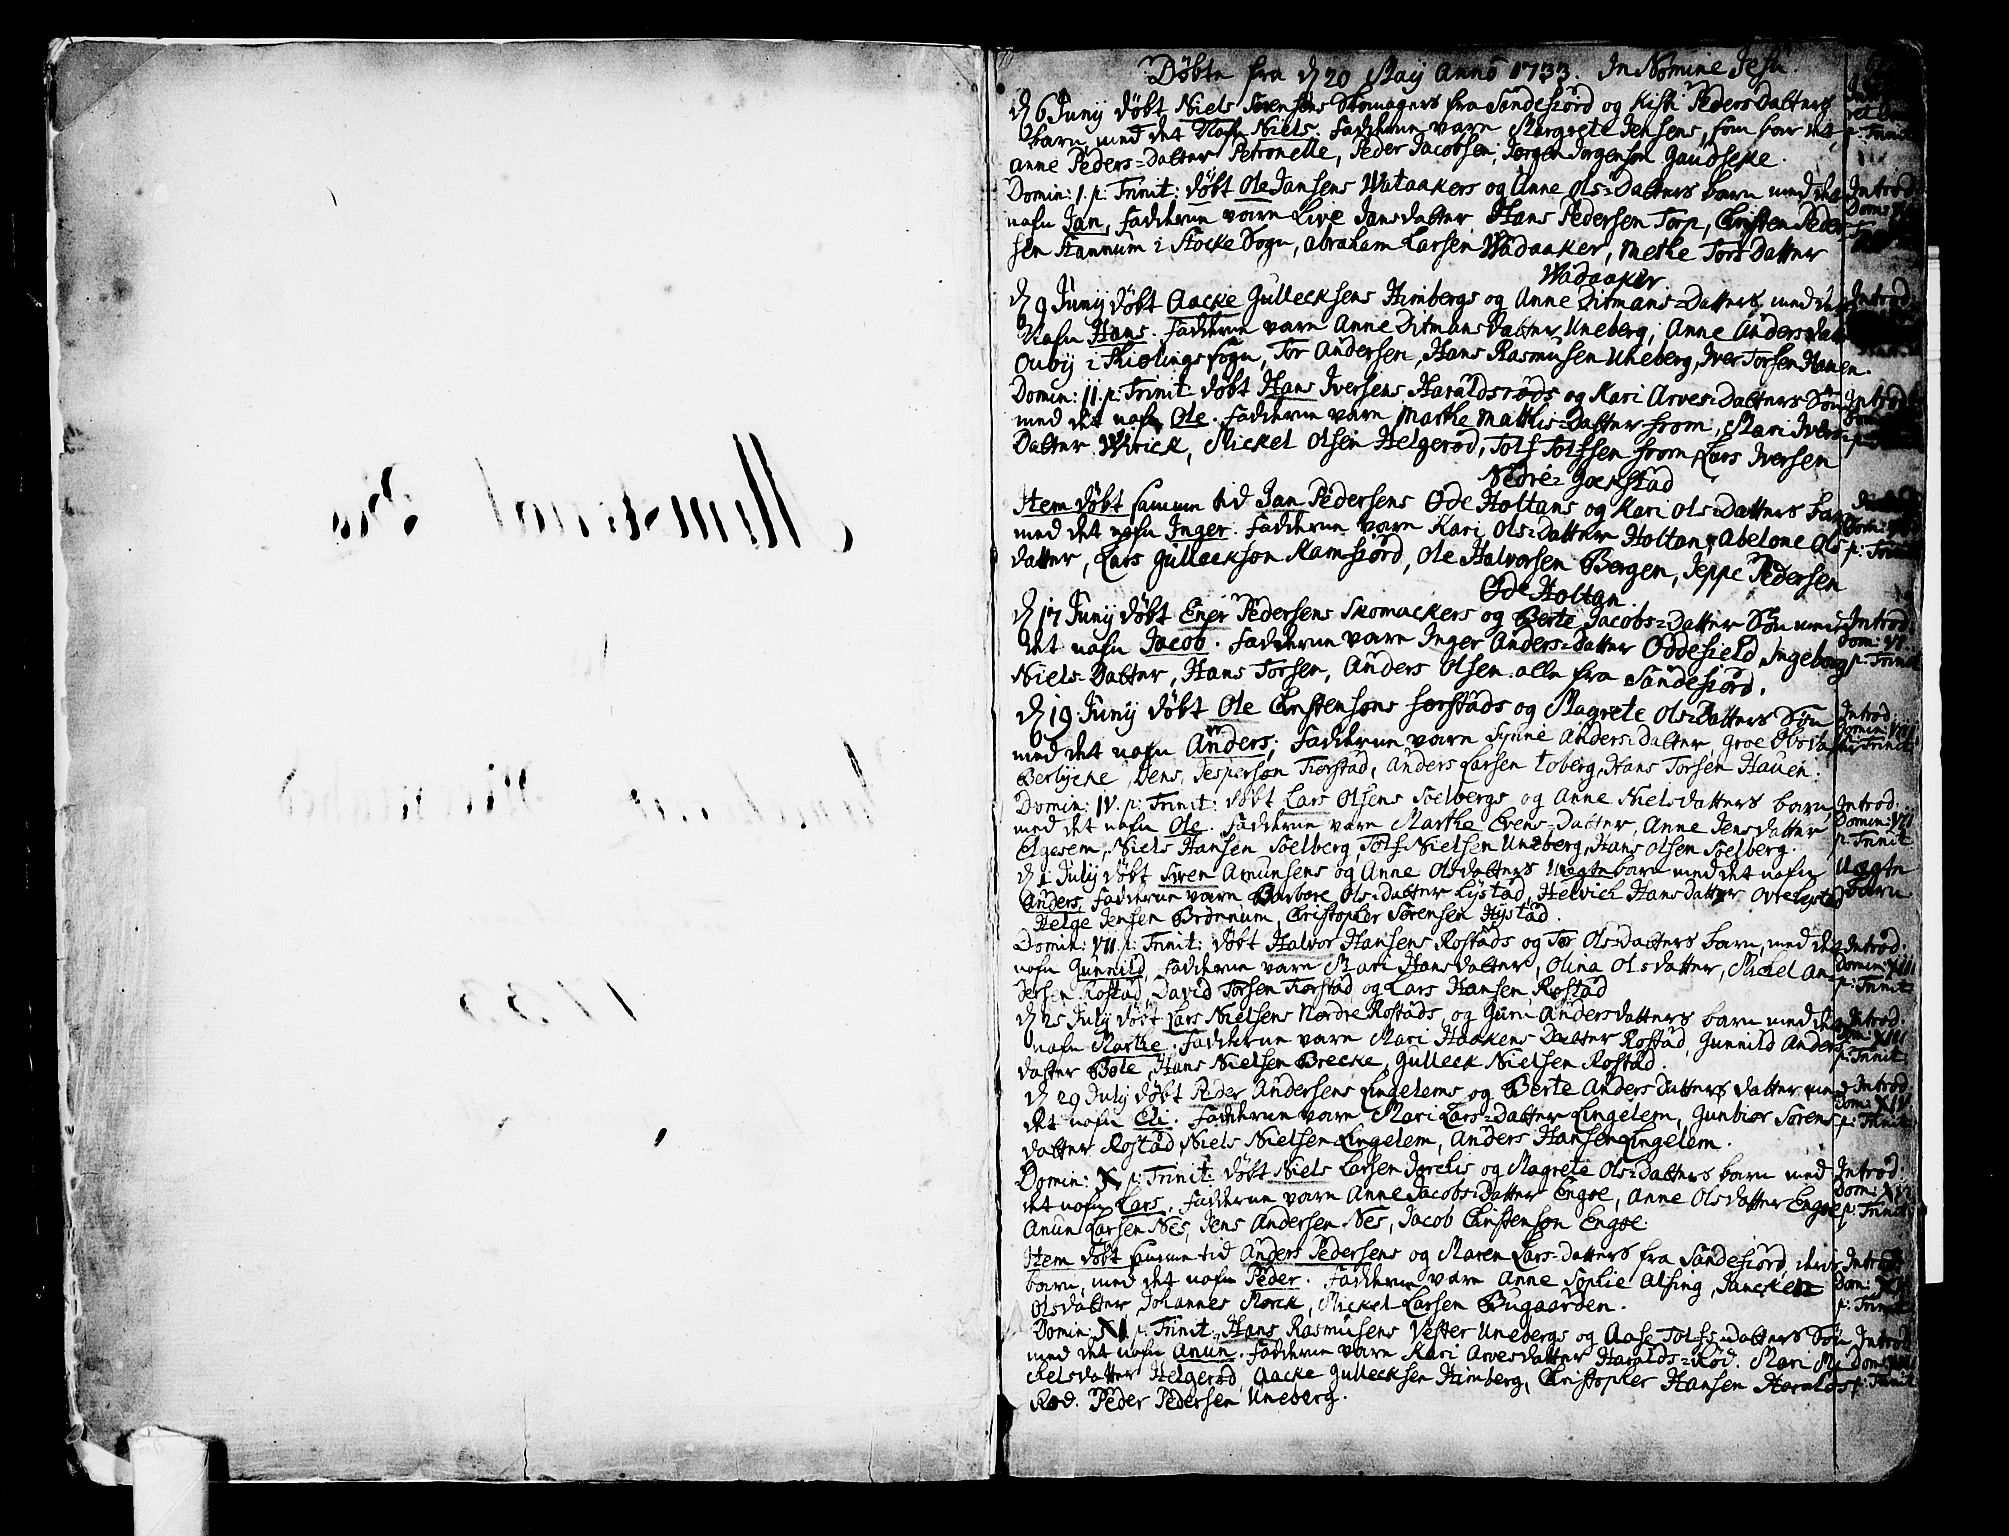 Døbte fra d 20 Maij Anno 1733. In Nomine Jesu.
d 6 Junij døbt Niels Sørensens Skomagers fra Sandefiord og Kisti Peders Datters
barn, med det Nafn Niels. Fadderne vare Margrete Jensens, som bar det,
Anne Peders=Datter Petronelle, Peder Jacobsen, Jørgen Jørgensøn
Domin: 1. p: Trinit: døbt Ole Jansens Wataakers og Anne Ols=Datters barn med det
nafn Jan, Fadderne vare Live Jansdatter Hans Pedersen Torp, Christen Peder-
sen Stannum i Stocke Sogn, Abraham Larsen Wadaaker, Methe Tors Datter
Wadaaker.
d 9 Junij døbt Aacke Gullecksens Himbergs og Anne Ditmans=Datters, med det
Nafn Hans. Fadderne vare Anne Ditmans Datter Uneberg, Anne Anders dat
Ouby i Thiølings sogn, Tor Andersen, Hans Rasmusen Uneberg, Iver Torsen Hauen.
Domin: 11. p: Trinit: døbt Hans Iversens Haraldsrøds og Kari Arves=Datters Søn
med det nafn Ole. Fadderne vare Marthe Mathis=Datter from, Mari Ivers=
Datter Wirick, Mickel Olsen Helgerød, Tolf Tolfsen from, Lars Iversen
Nedre=Gockstad
Item døbt samme tid Jan Pedersens Øde Holtans og Kari Ols=Datters barn
med det nafn Inger. Fadderne vare Kari Ols=Datter Holtan, Abelone Ols
datter, Lars Gulleckson Kamfiord, Ole Halvorsen Bergen, Jeppe Pedersen
Øde Holtan.
d 17 Junij døbt Ener Pedersens Skomackers og Berte Jacobs=Datter Søn med
det nafn Jacob. Fadderne vare Inger Anders=Datter Oddefield, Ingeborg
Niels=Datter, Hans Torsen, Anders Olsen alle fra Sandefiord.
d 19 Junij døbt Ole Christensøns forstads og Magrete Ols=Datters Søn
med det nafn Anders; Fadderne vare Synne Anders=Datter, Groe
Jens Jespersøn Fiorstad, Anders Larsen Loberg, Hans Torsen Hauen.
Domin: IV. p: Trinit: døbt Lars Olsens Soelbergs og Anne Nielsdatters barn
med det nafn Ole. Fadderne vare Marthe Evens=Datter, Anne Jensdatter
Elgesem, Niels Hansen Soelberg, Tolf Nielsen Uneberg, Hans Olsen Soelberg.
d 1 Julij døbt Søren Amunsens og Anne Olsdatters Uægtebarn med det nafn
Anders. Fadderne vare Barbare Ols=Datter Lystad, Helvich Hansdatter
Helge Jensen Brønnum, Christopher Sørensen Hystad.
Domin: VII p: Trinit: døbt Halvor Hansens Rostads og Tor Ols=Datters barn, med det
nafn Gunnild. Fadderne vare Mari Hansdatter, Olina Olsdatter, Mickel An-
dersen Rostad, David Torsen Fiorstad og Lars Hansen Rostad
d 25 Julij døbt Lars Nielsens Nordre Rostads, og Guri Andersdatters barn med det
nafn Marthe. Fadderne vare Mari Haakens Datter Rostad, Gunnild Anders
datter Bøle, Hans Nielsen Brecke, Gulleck Nielsen Rostad.
d 29 Julij døbt Peder Andersens Lingelems og Berte Anders Datters datter med
det nafn Eli. Fadderne vare Mari Lars=Datter Lingelem, Gunbior Sørens
datter Rostad, Niels Nielsen Lingelem, Anders Hansen Lingelem.
Domin: X p: Trinit: døbt Niels Larsen og Magrete Ols=Datters barn med
det nafn Lars. Fadderne vare Anne Jacobs=Datter Engøe, Anne Olsdatter Engøe
Anun Larsen Nes, Jens Andersen Nes, Jacob Christensøn Engøe.
Item døbt samme tid Anders Pedersens og Maren Lars=datters fra Sandefiord, deris
barn, med det nafn Peder. Fadderne vare Anne Sophie Alsing, Jancken
Olsdatter, Johannes Morck, Mickel Larsen Bugaarden.
Domin: XI p: Trinit: Hans Rasmusens Vester Unebergs og Aase Tolfs=datters Søn
med det nafn Anun. Fadderne vare Kari Arvesdatter Haralds=Rød. Mari Mi
ckelsdatter Helgerød, Aacke Gullecksen Himberg, Christopher Hansen Haralds
Rød. Peder Pedersen Uneberg.
p: Trinit
Introd
Introd
Introd
p: Trinit
Introd.
Dom: VI.
p: Trinit
Introd.
Domin: VIII
p: Trinit
Introd.
Domin: VIII
p: Trinit
Uægte
barn.
Introd.
Domin: XII
p: Trinit
Introd.
Dom: XIII
p: Trinit
Introd.
Dom: XIV
p: Trinit
Introd.
p: Trinit
Introd.
p: Trinit
Introd.
p: Trinit
1733